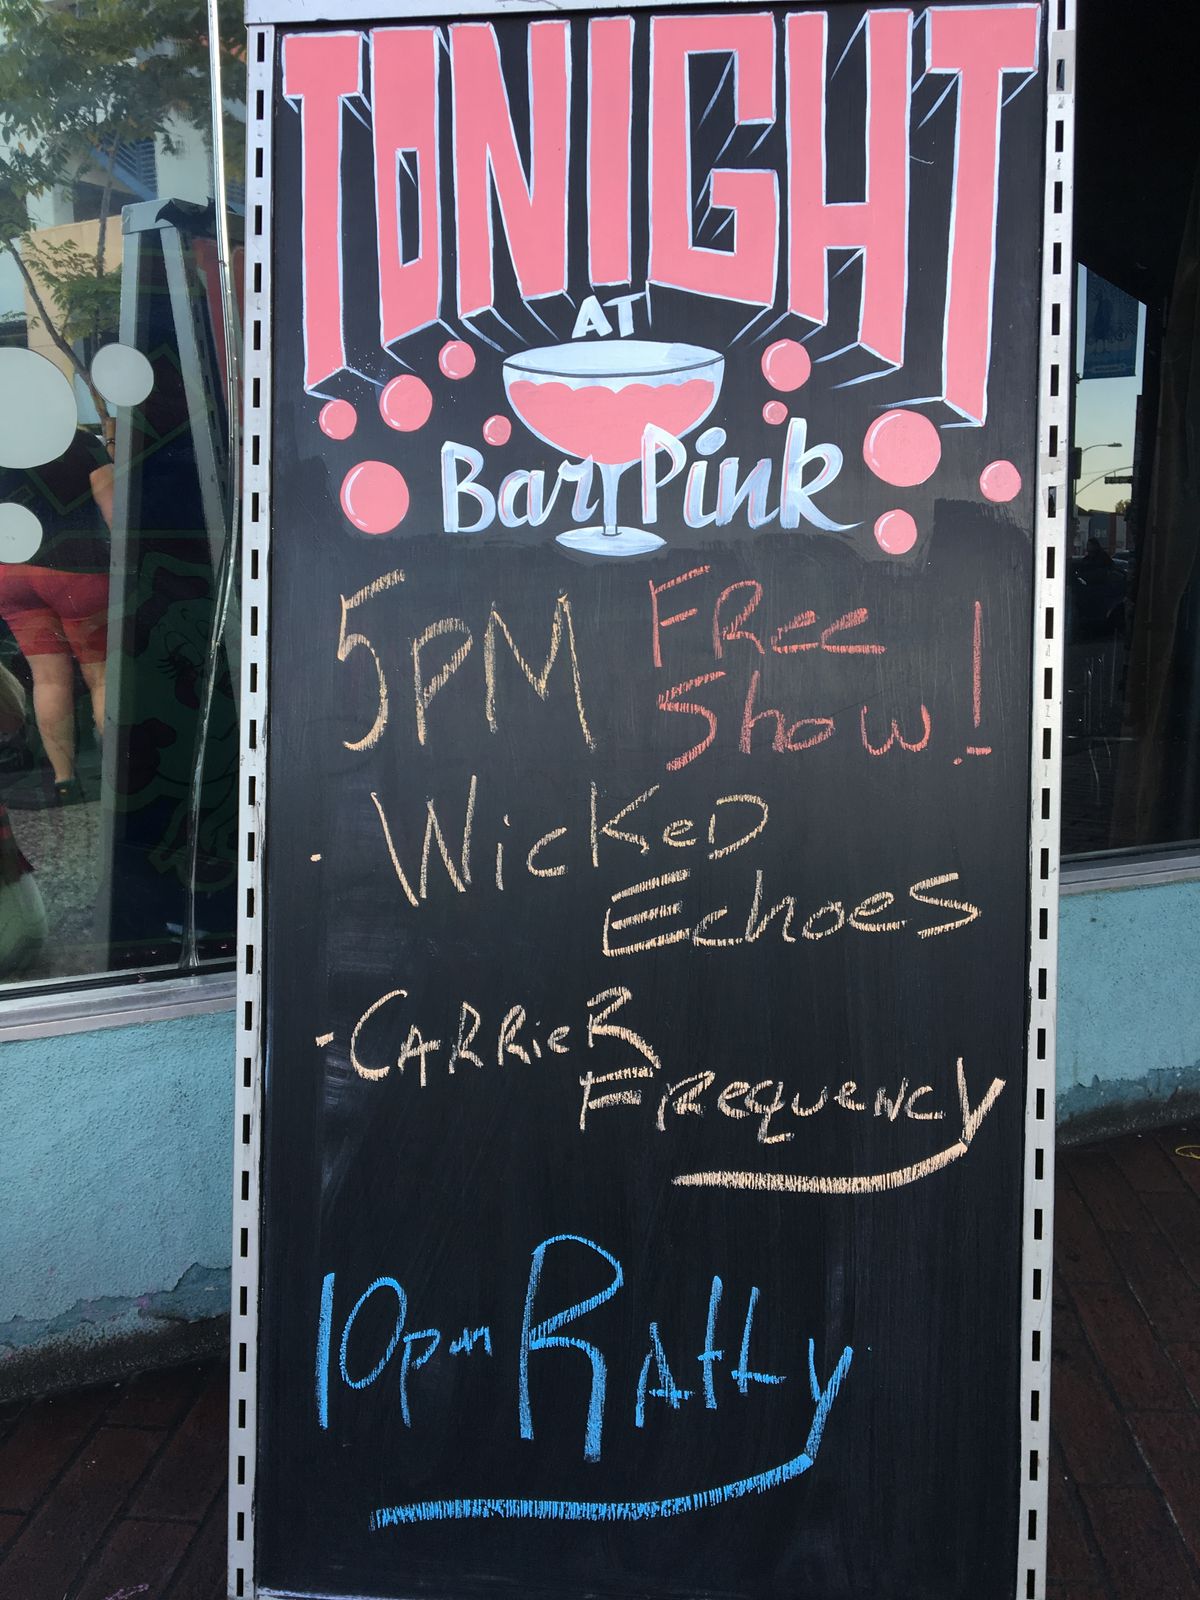 TONIGHT
AT
Bar Pink
5PM FRee
Show!
· WickeD
Echoes
- CARRieR
FRequeNcy
10pm RAtty